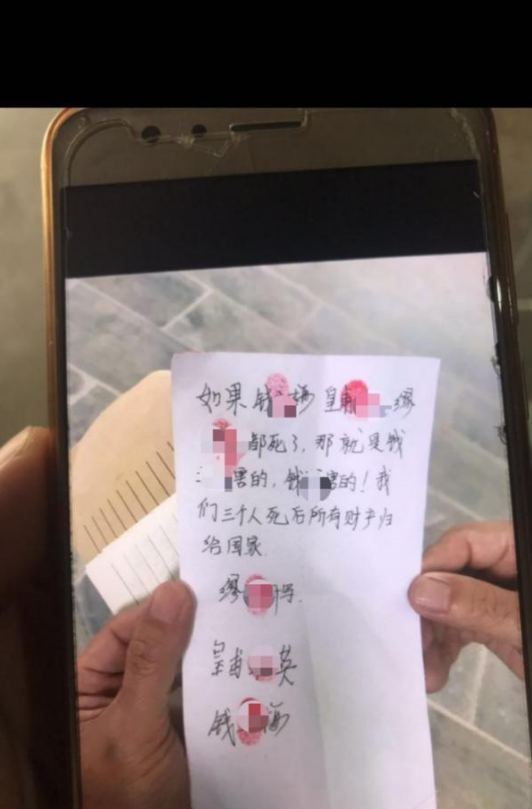 如果钱海 皇甫 缪
都死了，那就是钱
害的，钱害的！我
们三个人死后所有财产归
给国家
缪
皇甫英
钱海